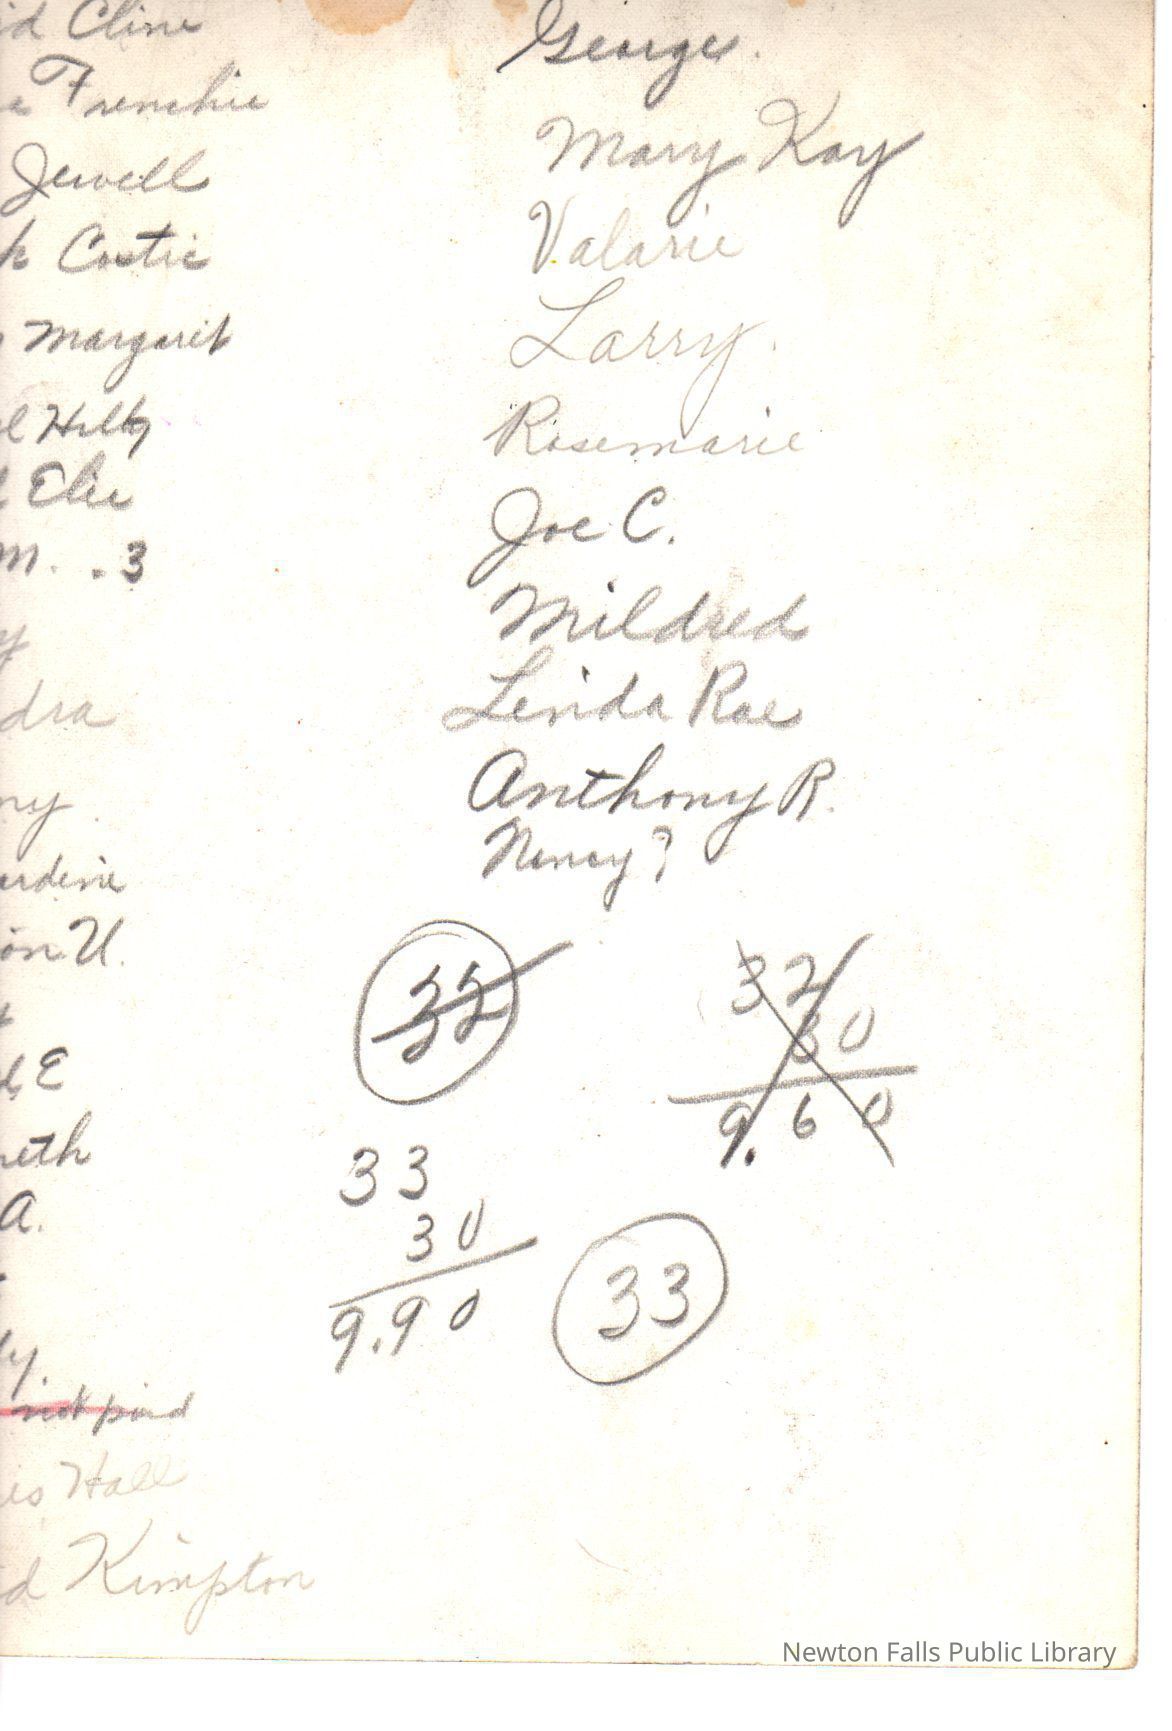 id Cline
e Frenchie
Jewell
k Costic
Margaret
l Hilly
d Elie
M. . 3
y
dra
ny
ardine
on U.
t
E
neth
A.
ly.
not paid
is Hall
d Kimpton
George.
Mary Kay
Valarie
Larry.
Rosemarie
Joe C.
Mildred
Linda Rae
Anthony R.
Nancy?
32
32
30
9.60
33
30
9.90
33
Newton Falls Public Library